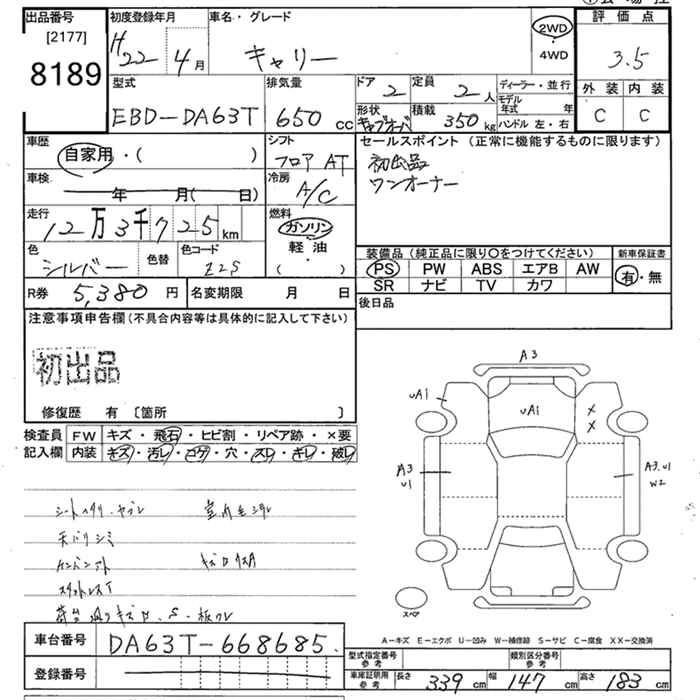 出品番号
[2177]
8189
初度登録年月
H22年 4月
車名・グレード
キャリー
2WD・4WD
評価点
3.5
外装 内装
C C
型式
EBD-DA63T
排気量
650 CC
ドア 2
定員 2人
形状 キャブオーバ
積載 350 kg
ディーラー・並行
モデル年式 年
ハンドル 左・右
車歴
自家用・( )
シフト
フロア AT
車検
年 月( 日)
冷房
A/C
走行
12万3千725km
燃料
ガソリン
軽油
( )
色
シルバー
色替
色コード
Z2S
セールスポイント (正常に機能するものに限ります)
初出品
ワンオーナー
装備品 (純正品に限り○をつけてください)
PS PW ABS エアB AW
SR ナビ TV カワ
新車保証書
有・無
R券 5,380円
名変期限 月 日
後日品
注意事項申告欄 (不具合内容等は具体的に記入して下さい)
初出品
修復歴 有 〔箇所 〕
検査員 FW キズ・飛石・ヒビ割・リペア跡・×要
記入欄 内装 キズ・汚レ・コゲ・穴・スレ・キレ・破レ
シートヘタリ・ヤブレ
天バリシミ
A3
UA1
UA1
X
X
A3
U1
A3.U1
W2
スペア
A―キズ E―エクボ U―凹み W―補修跡 S―サビ C―腐食 XX―交換済
車台番号
DA63T-668685.
登録番号
型式指定番号
参考
類別区分番号
参考
車庫証明用
参考
長さ 339 cm
幅 147 cm
高さ 183 cm